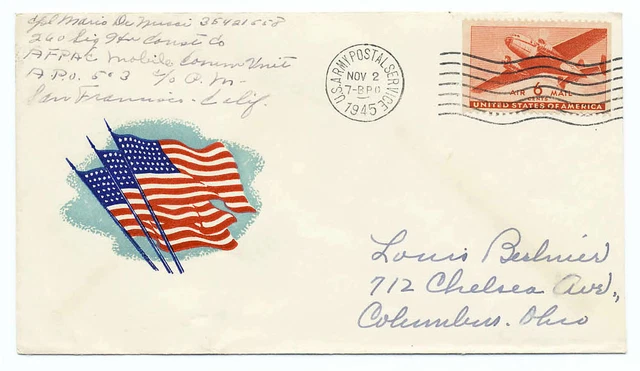 Cpl Mario De Nucci 35421558
260 Sig Hv Const Co
AFPAC Mobile Comm Unit
A.P.O. 503 c/o P.M.
San Francisco - Calif.
U.S. ARMY POSTAL SERVICE
NOV 2
1945
AIR 6 MAIL
CENTS
UNITED STATES OF AMERICA
Louis
712 Chelsea Ave.,
Columbus. Ohio